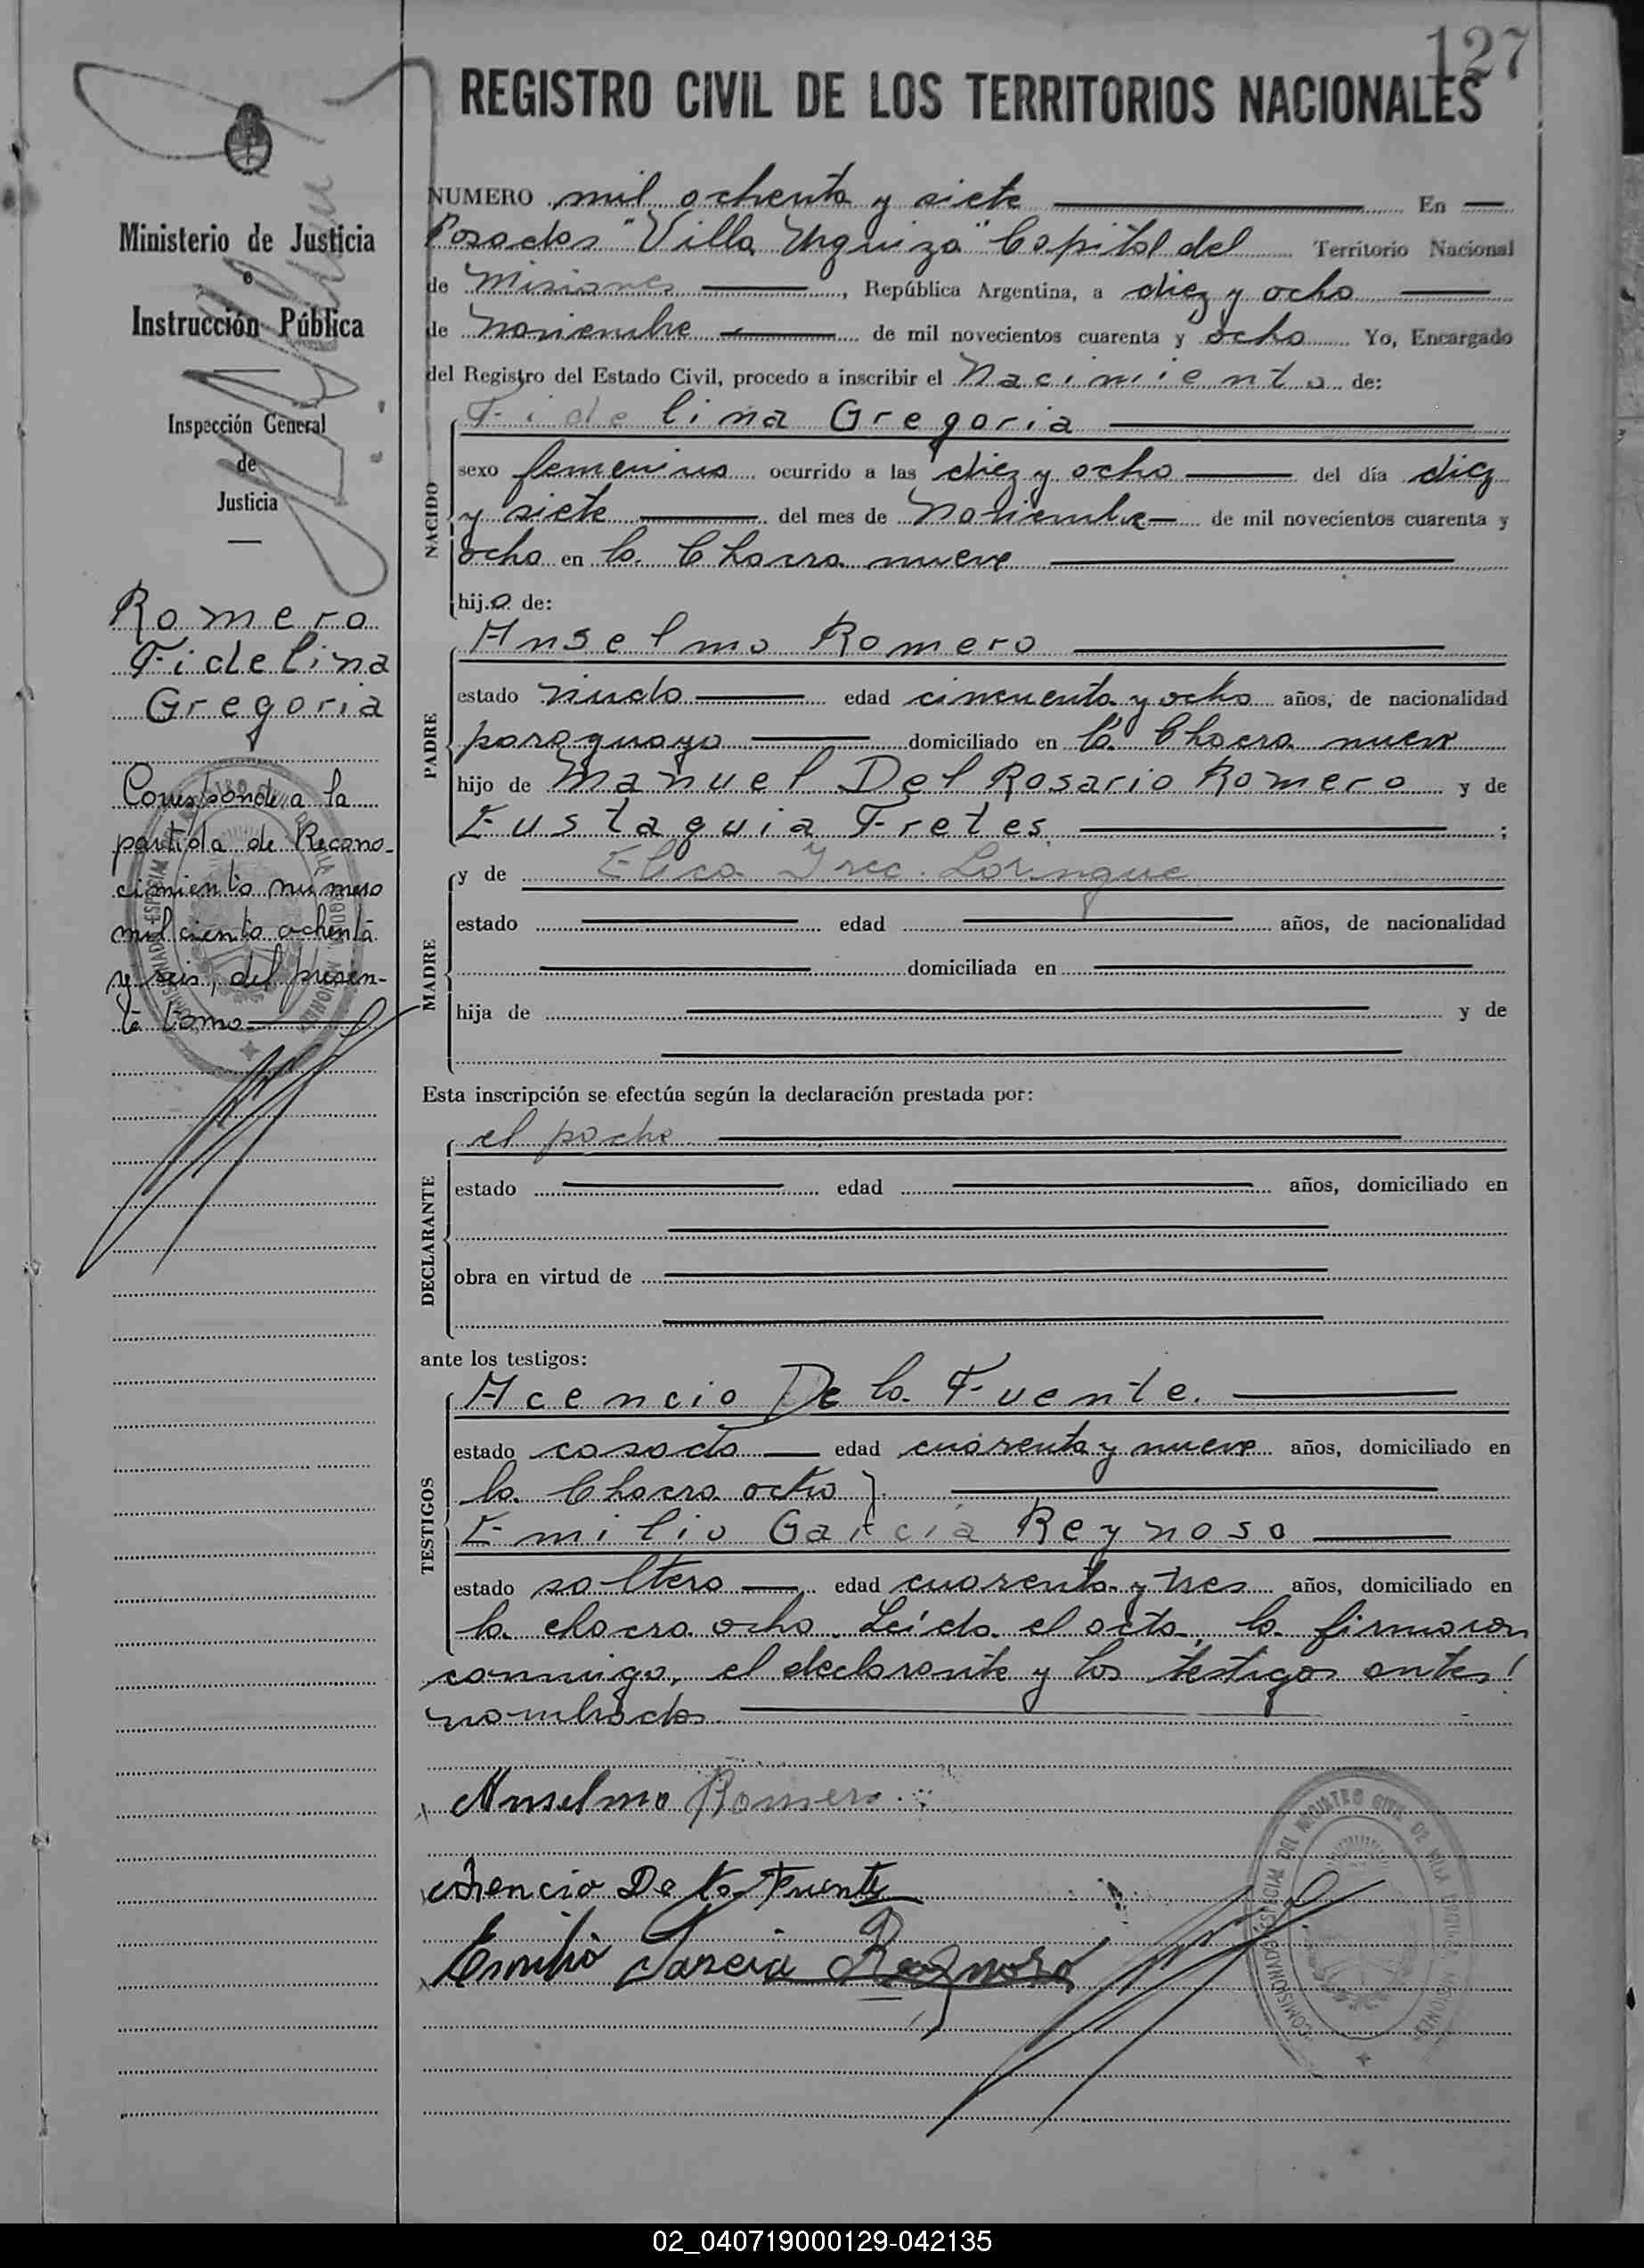 127
REGISTRO CIVIL DE LOS TERRITORIOS NACIONALES
Ministerio de Justicia
e
Instrucción Pública
Inspección General
de
Justicia
Romero
Fidelina
Gregoria
Corresponde a la
partida de Recono-
cimiento numero
mil ciento ochenta
y seis, del presen-
te tomo
NUMERO mil ochenta y siete En
Posadas "Villa Urquiza" Capital del Territorio Nacional
de Misiones, República Argentina, a diez y ocho
de Noviembre de mil novecientos cuarenta y ocho Yo, Encargado
del Registro del Estado Civil, procedo a inscribir el Nacimiento de:
NACIDO
Fidelina Gregoria
sexo femenino ocurrido a las diez y ocho del día diez
y siete del mes de Noviembre de mil novecientos cuarenta y
ocho en la Chacra nueve
hija de:
PADRE
Anselmo Romero
estado viudo edad cincuenta y ocho años, de nacionalidad
paraguayo domiciliado en la Chacra nueve
hijo de Manuel Del Rosario Romero y de
Eustaquia Fretes ;
MADRE
y de
estado edad años, de nacionalidad
domiciliada en
hija de y de
Esta inscripción se efectúa según la declaración prestada por:
DECLARANTE
el padre
estado edad años, domiciliado en
obra en virtud de
ante los testigos:
TESTIGOS
Acencio De la Fuente.
estado casado edad cuarenta y nueve años, domiciliado en
la Chacra ocho
Emilio Garcia Reynoso
estado soltero edad cuarenta y tres años, domiciliado en
la chacra ocho. Leída el acta, la firmaron
conmigo, el declarante y los testigos antes
nombrados
Anselmo Romero
Acencio De la Fuente
Emilio Garcia Reynoso
COMISIONADO ESPECIAL DEL REGISTRO CIVIL DE VILLA URQUIZA MISIONES
02_040719000129-042135